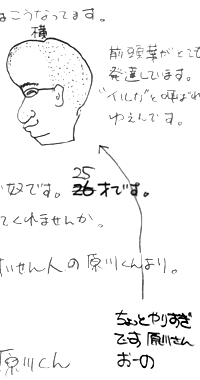 はこうなってます。
横
前頭葉がとても
発達しています。
"イルカ"と呼ばれ
ゆえんです。
い奴です。25
26才です。
てくれませんか。
せん人の原川くんより。
ちょっとやりすぎ
です原川さん
おーの
原川くん